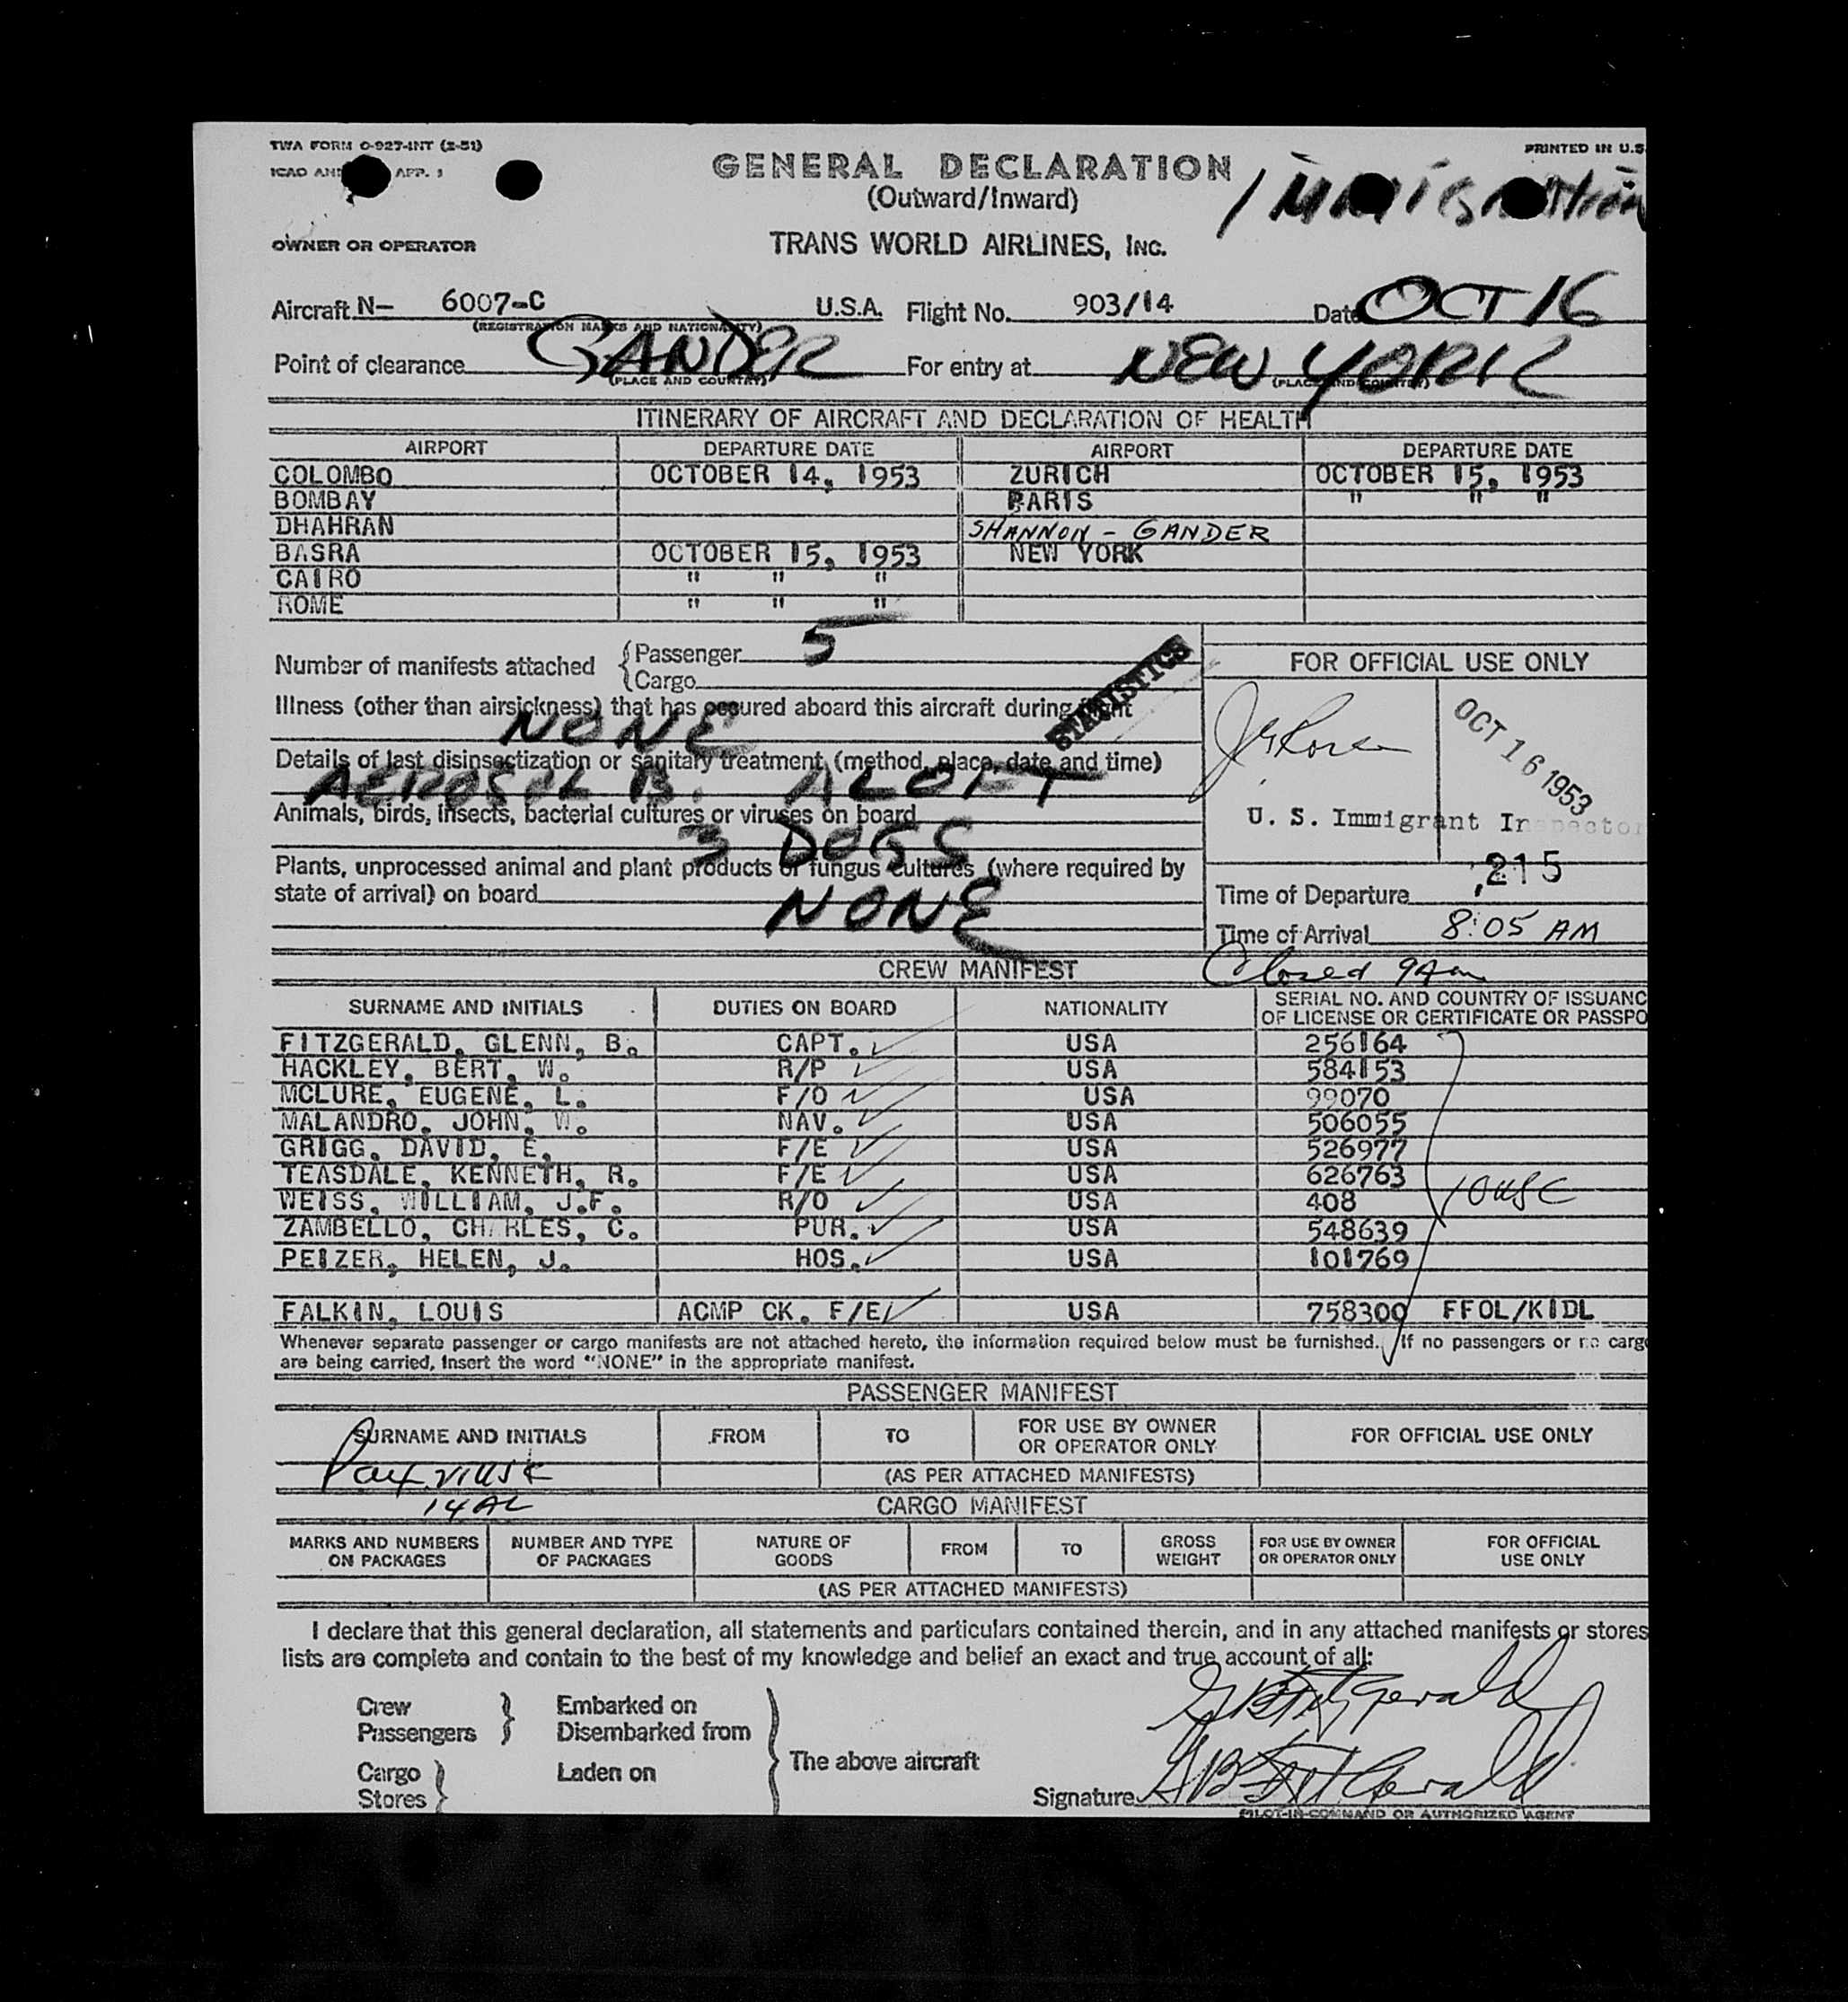 TWA FORM O-927-INT (2-51)
PRINTED IN U.S.
ICAO APP.
GENERAL DECLARATION
(Outward/Inward)
OWNER OR OPERATOR
TRANS WORLD AIRLINES, INC.
Aircraft N- 6007-C U.S.A. Flight No. 903/14 Date OCT 16
(REGISTRATION MARKS AND NATIONALITY)
Point of clearance GANDER For entry at NEW YORK
(PLACE AND COUNTRY) (PLACE AND COUNTRY)
ITINERARY OF AIRCRAFT AND DECLARATION OF HEALTH
AIRPORT DEPARTURE DATE AIRPORT DEPARTURE DATE
COLOMBO OCTOBER 14, 1953 ZURICH OCTOBER 15, 1953
BOMBAY PARIS " " "
DHAHRAN SHANNON - GANDER
BASRA OCTOBER 15, 1953 NEW YORK
CAIRO " " "
ROME " " "
Number of manifests attached {Passenger 5
{Cargo
STATISTICS
FOR OFFICIAL USE ONLY
Illness (other than airsickness) that has occured aboard this aircraft during flight
NONE
OCT 16 1953
Details of last disinsectization or sanitary treatment (method, place, date and time)
AEROSOL B. ALOFT
Animals, birds, insects, bacterial cultures or viruses on board
3 DOGS
U. S. Immigrant Inspector
Plants, unprocessed animal and plant products or fungus cultures (where required by
state of arrival) on board
NONE
Time of Departure 215
Time of Arrival 8:05 AM
Closed 9 Am
CREW MANIFEST
SURNAME AND INITIALS DUTIES ON BOARD NATIONALITY SERIAL NO. AND COUNTRY OF ISSUANC
OF LICENSE OR CERTIFICATE OR PASSPO
FITZGERALD, GLENN, B. CAPT. USA 256164
HACKLEY, BERT, W. R/P USA 584153
MCLURE, EUGENE, L. F/O USA 99070
MALANDRO, JOHN, W. NAV. USA 506055
GRIGG, DAVID, E. F/E USA 526977
TEASDALE, KENNETH, R. F/E USA 626763
WEISS, WILLIAM, J.F. R/O USA 408 10 USC
ZAMBELLO, CHARLES, C. PUR. USA 548639
PEIZER, HELEN, J. HOS. USA 101769
FALKIN, LOUIS ACMP CK. F/E USA 758300 FFOL/KIDL
Whenever separate passenger or cargo manifests are not attached hereto, the information required below must be furnished. If no passengers or no cargo
are being carried, insert the word "NONE" in the appropriate manifest.
PASSENGER MANIFEST
SURNAME AND INITIALS FROM TO FOR USE BY OWNER
OR OPERATOR ONLY FOR OFFICIAL USE ONLY
(AS PER ATTACHED MANIFESTS)
14 AL
CARGO MANIFEST
MARKS AND NUMBERS
ON PACKAGES NUMBER AND TYPE
OF PACKAGES NATURE OF
GOODS FROM TO GROSS
WEIGHT FOR USE BY OWNER
OR OPERATOR ONLY FOR OFFICIAL
USE ONLY
(AS PER ATTACHED MANIFESTS)
I declare that this general declaration, all statements and particulars contained therein, and in any attached manifests or stores
lists are complete and contain to the best of my knowledge and belief an exact and true account of all:
GB Fitzgerald
Crew Embarked on
Passengers Disembarked from
The above aircraft
Cargo Laden on
Stores
Signature GB Fitzgerald
PILOT-IN-COMMAND OR AUTHORIZED AGENT